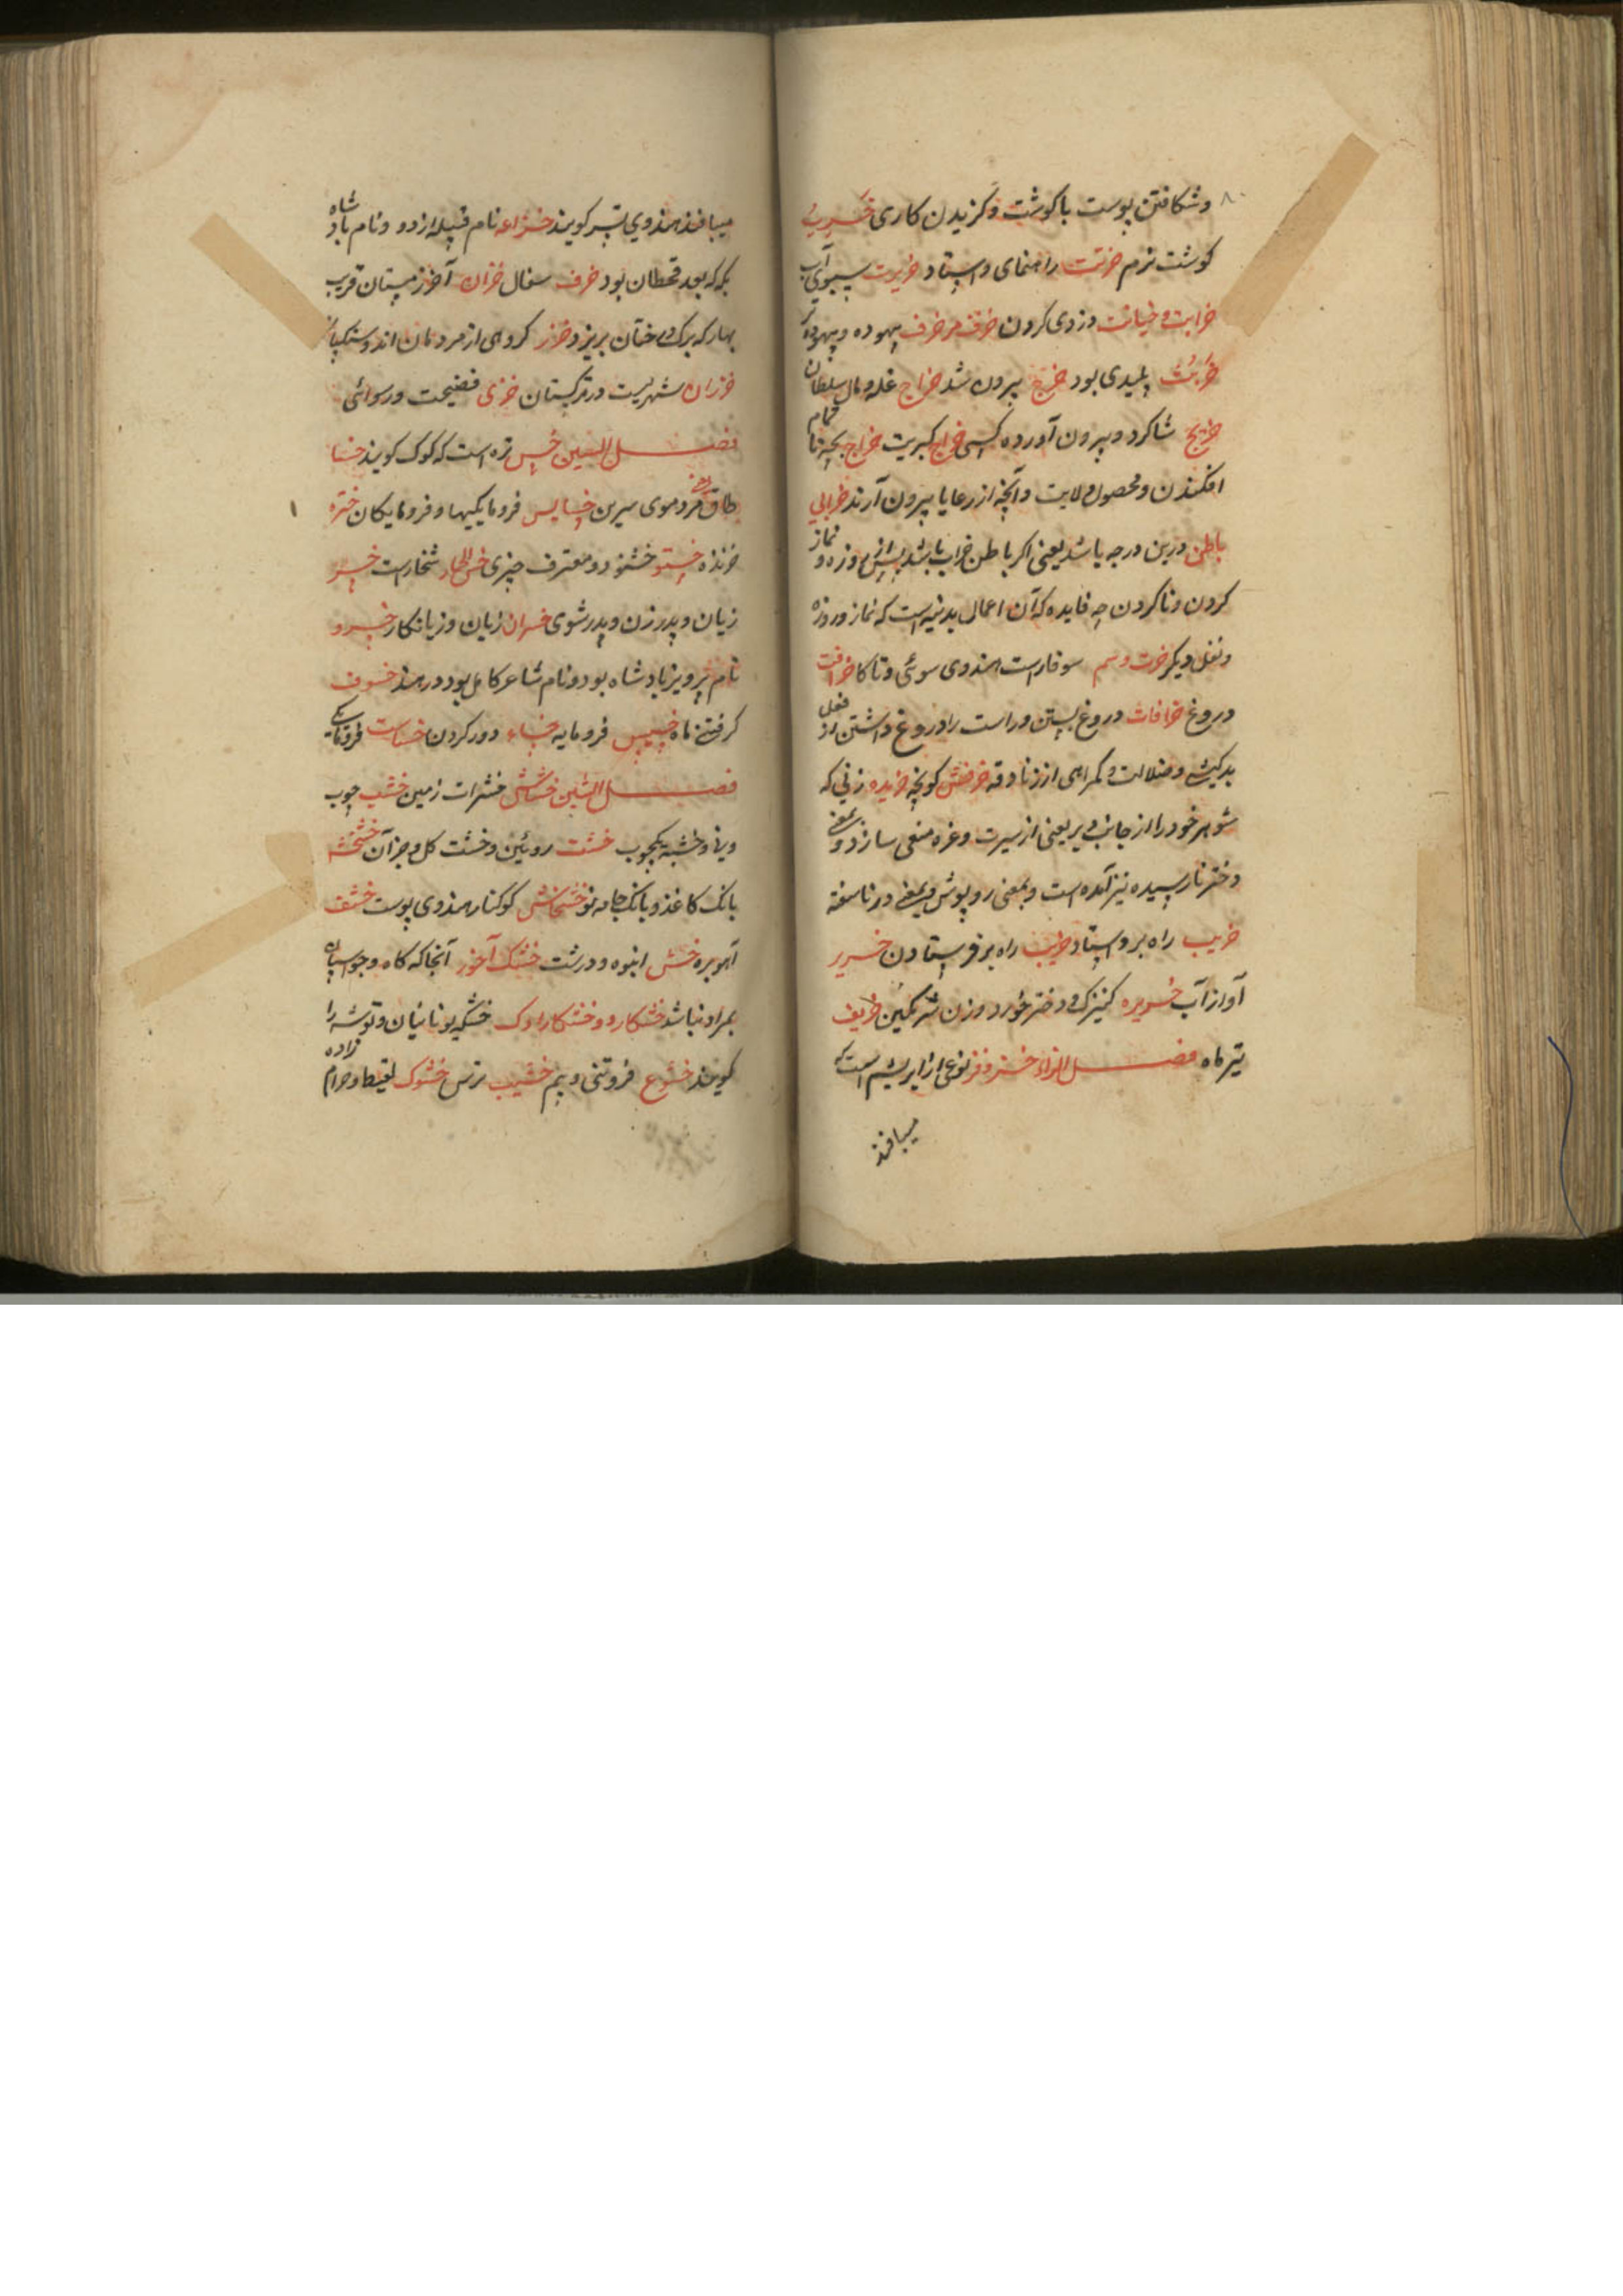 ۸۰
وشکافتن پوست با کوشت و کزیدن کاری
کوشت نرم خرتت راهنمای واستاد خریرت سبوی آب
خرابت و خیانت دزدی کردن خرف مرخرف بیهوده و بیهوده
پلیدی بود خرج بیرون شد خراج غله و مال سلطان
خریج شاکرد و بیرون آورده کسی خراج کبریت خراج بچه ناتمام
افکندن و محصول ولایت و آنچه از رعایا بیرون آرند خرابی
باطن درین درجه باشد یعنی اکر باطن خراب باشد پس از روزه و نماز
کردن و ناکردن چه فایده که آن اعمال بدنیه است که نماز و روزه
و نفل دیکر خرت و سم سوفار است هندوی سوئی و تاکا خرافت
دروغ خرافات دروغ بستن و راست را دروغ داشتن از فعل
بدکیشی و ضلالت و کمراهی از زنادقه خرفش کوبچه خریده زنی که
شوهر خود را از جانب دیر یعنی از سیرت و غره منفی سازد و بمعنی
دختر نارسیده نیز آمده است و بمعنی روپوش و بمعنی در ناسفته
خریب راه بر و استاد خریب راه بر فرستادن خریر
آواز آب خریده کنیزک و دختر خورد و زن شرمکین خریف
تیر ماه فصل الزاء خز و قز نوعی از ابریشم است که
میبافند
میبافند هندوی تسر کویند خزاعه نام قبیله ازد و نام بادشاه
مکه که بعد قحطان بود خزف سفال خزان آخر زمستان قریب
بهار که برک درختان بریزد خزر کروهی از مردمان اند
خزران شهریست در ترکستان خزی فضیحت و رسوائی
فصل السین خس تره است که کوک کویند خسا
طاق فرد موی سرین خسایس فرومایکیها و فرومایکان
خزنده خستو خشنود و معترف چیزی شخار است خسر
زیان و پدر زن و پدر شوی خسران زیان و زیانکار خسرو
نام پرویز بادشاه بود و نام شاعر کامل بود در هند خسوف
کرفتن ماه خسیس فرومایه خساء دور کردن خساست فرومایکی
فصل الشین خشاش حشرات زمین خشب چوب
ویژه و خشبه یکچوب خشت روئین و خشت کل و جز آن خشخشه
بانک کاغذ و بانک جامه نو خشخاش کوکنار هندوی پوست خشف
آهو بره خشن انبوه و درشت خشک آخور آنجا که کاه و جو اسپان
بمراد نباشد خشکار و خشکار ادک خشکه یونانیان و توشه را
کویند خشوع فروتنی و بیم خشیب ترس خشوک لقیط و حرام زاده